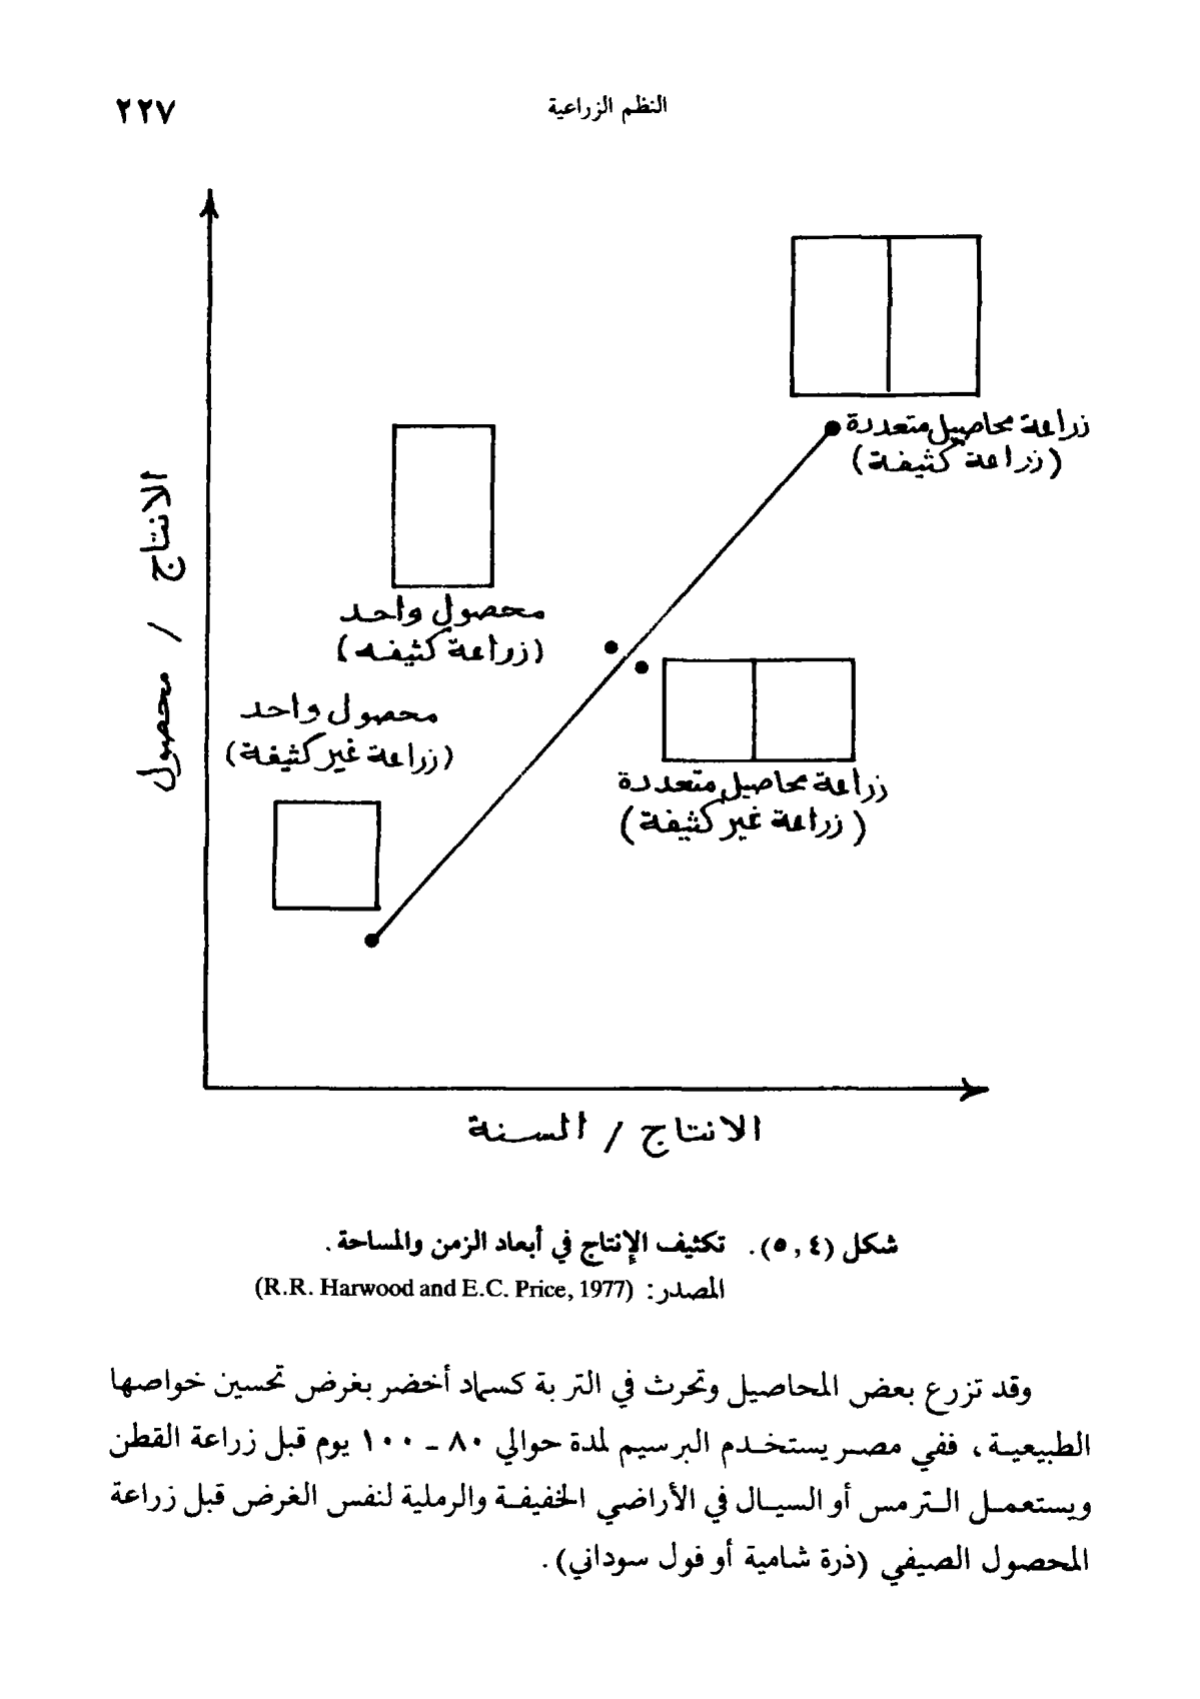 النظم الزراعية
٢٢٧
زراعة محاصيل متعددة
(زراعة كثيفة)
محصول واحد
(زراعة كثيفه)
محصول واحد
(زراعة غير كثيفة)
زراعة محاصيل متعددة
(زراعة غير كثيفة)
الانتاج / محصول
الانتاج / السنة
شكل (٥,٤). تكثيف الإنتاج في أبعاد الزمن والمساحة.
المصدر: (R.R. Harwood and E.C. Price, 1977)
وقد تزرع بعض المحاصيل وتحرث في التربة كسماد أخضر بغرض تحسين خواصها
الطبيعية، ففي مصر يستخدم البرسيم لمدة حوالي ٨٠ - ١٠٠ يوم قبل زراعة القطن
ويستعمل الترمس أو السيال في الأراضي الخفيفة والرملية لنفس الغرض قبل زراعة
المحصول الصيفي (ذرة شامية أو فول سوداني).